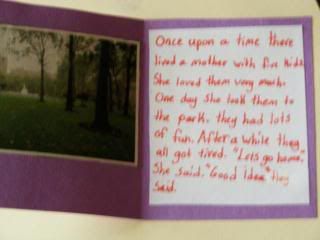 Once upon a time there
lived a mother with five kids.
She loved them very much.
One day she took them to
the park. they had lots
of fun. After a while they
all got tired. "Lets go home,"
She said. "Good Idea" they
said.